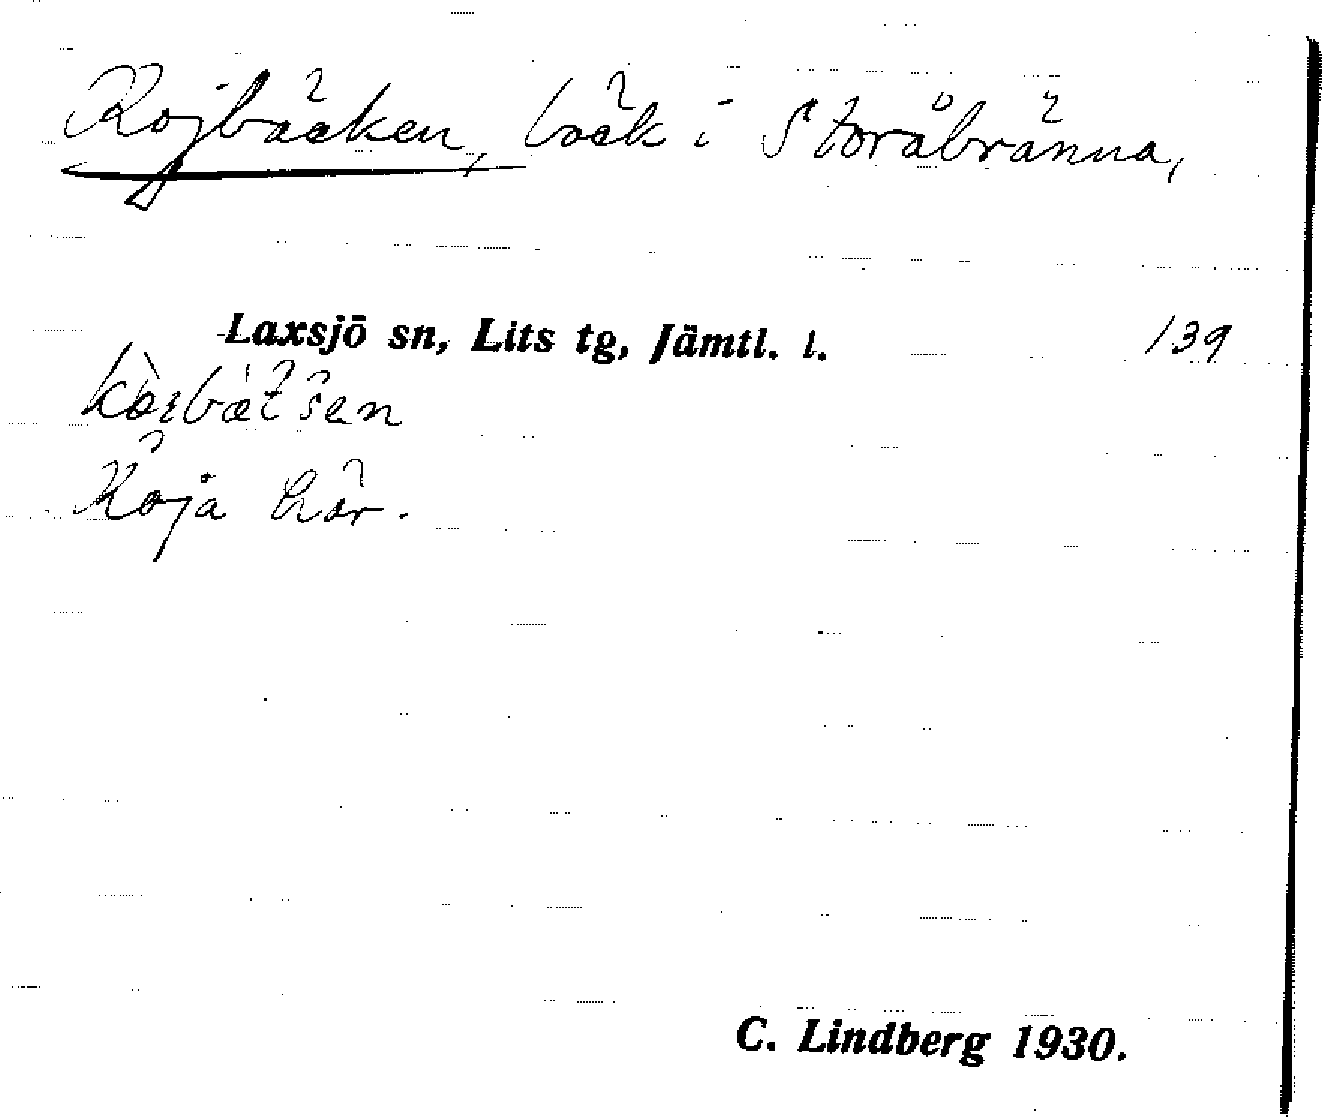 Kojbäcken, bäck i Storåbränna,
Laxsjö sn, Lits tg, Jämtl. l. 139
Koja här.
C. Lindberg 1930.